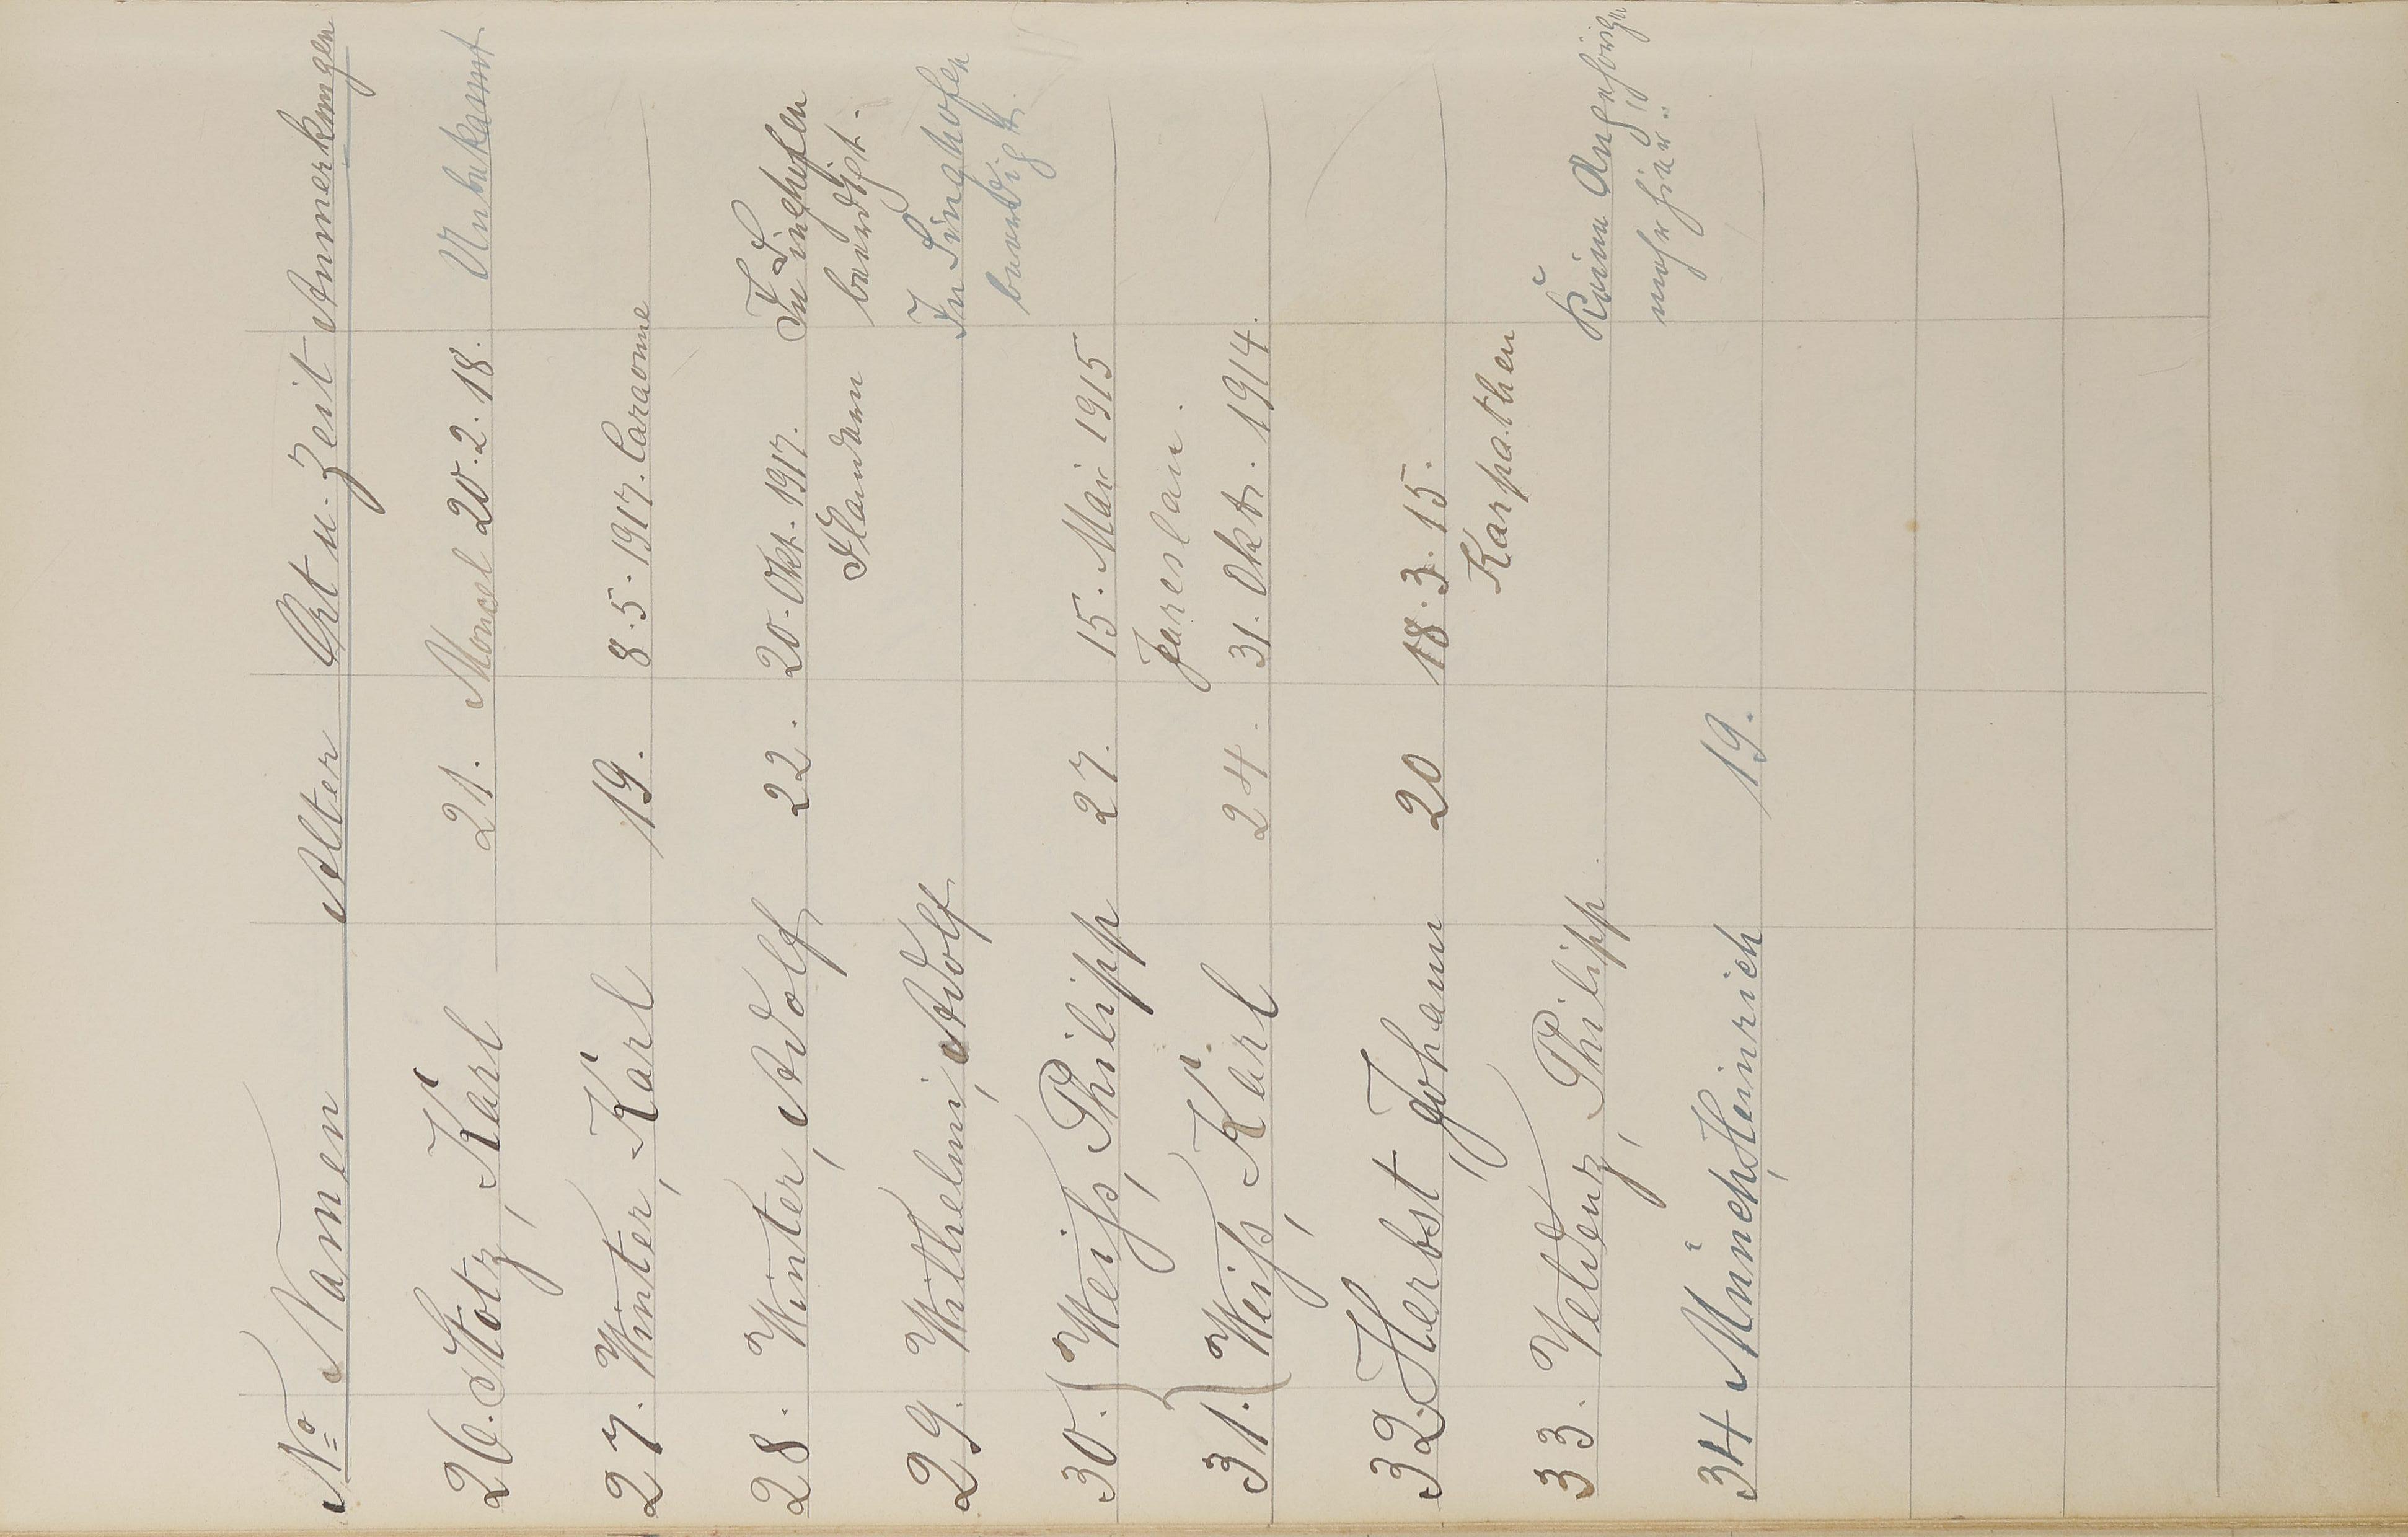 No Namen Alter Ort u. Zeit Anmerkungen
26. Stotz, Karl 21. Moncel 20.2.18. Unbekannt
27. Winter, Karl 19. 8.5.1917. Craonne
28. Winter, Adolf 22. 20. Okt. 1917. In Singhofen
Flandern beerdigt.
29. Wilhelmi, Adolf In Singhofen
beerdigt.
30. Weiß, Philipp 27. 15. Mai 1915
Jareslau.
31. Weiß, Karl 24. 31. Okt. 1914.
32. Herbst Johann 20 18.3.15.
Karpathen
33. Veldenz, Philipp Keine Angehörigen
mehr hier.
34 Münch, Heinrich 19.